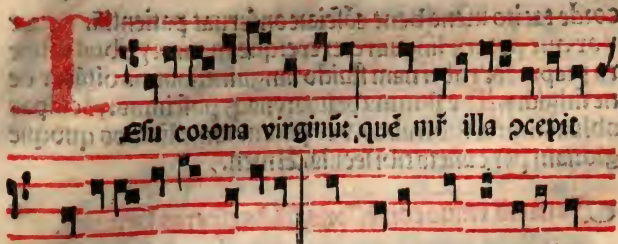 IEsu corona virginū: quē mr̄ illa ↄcepit